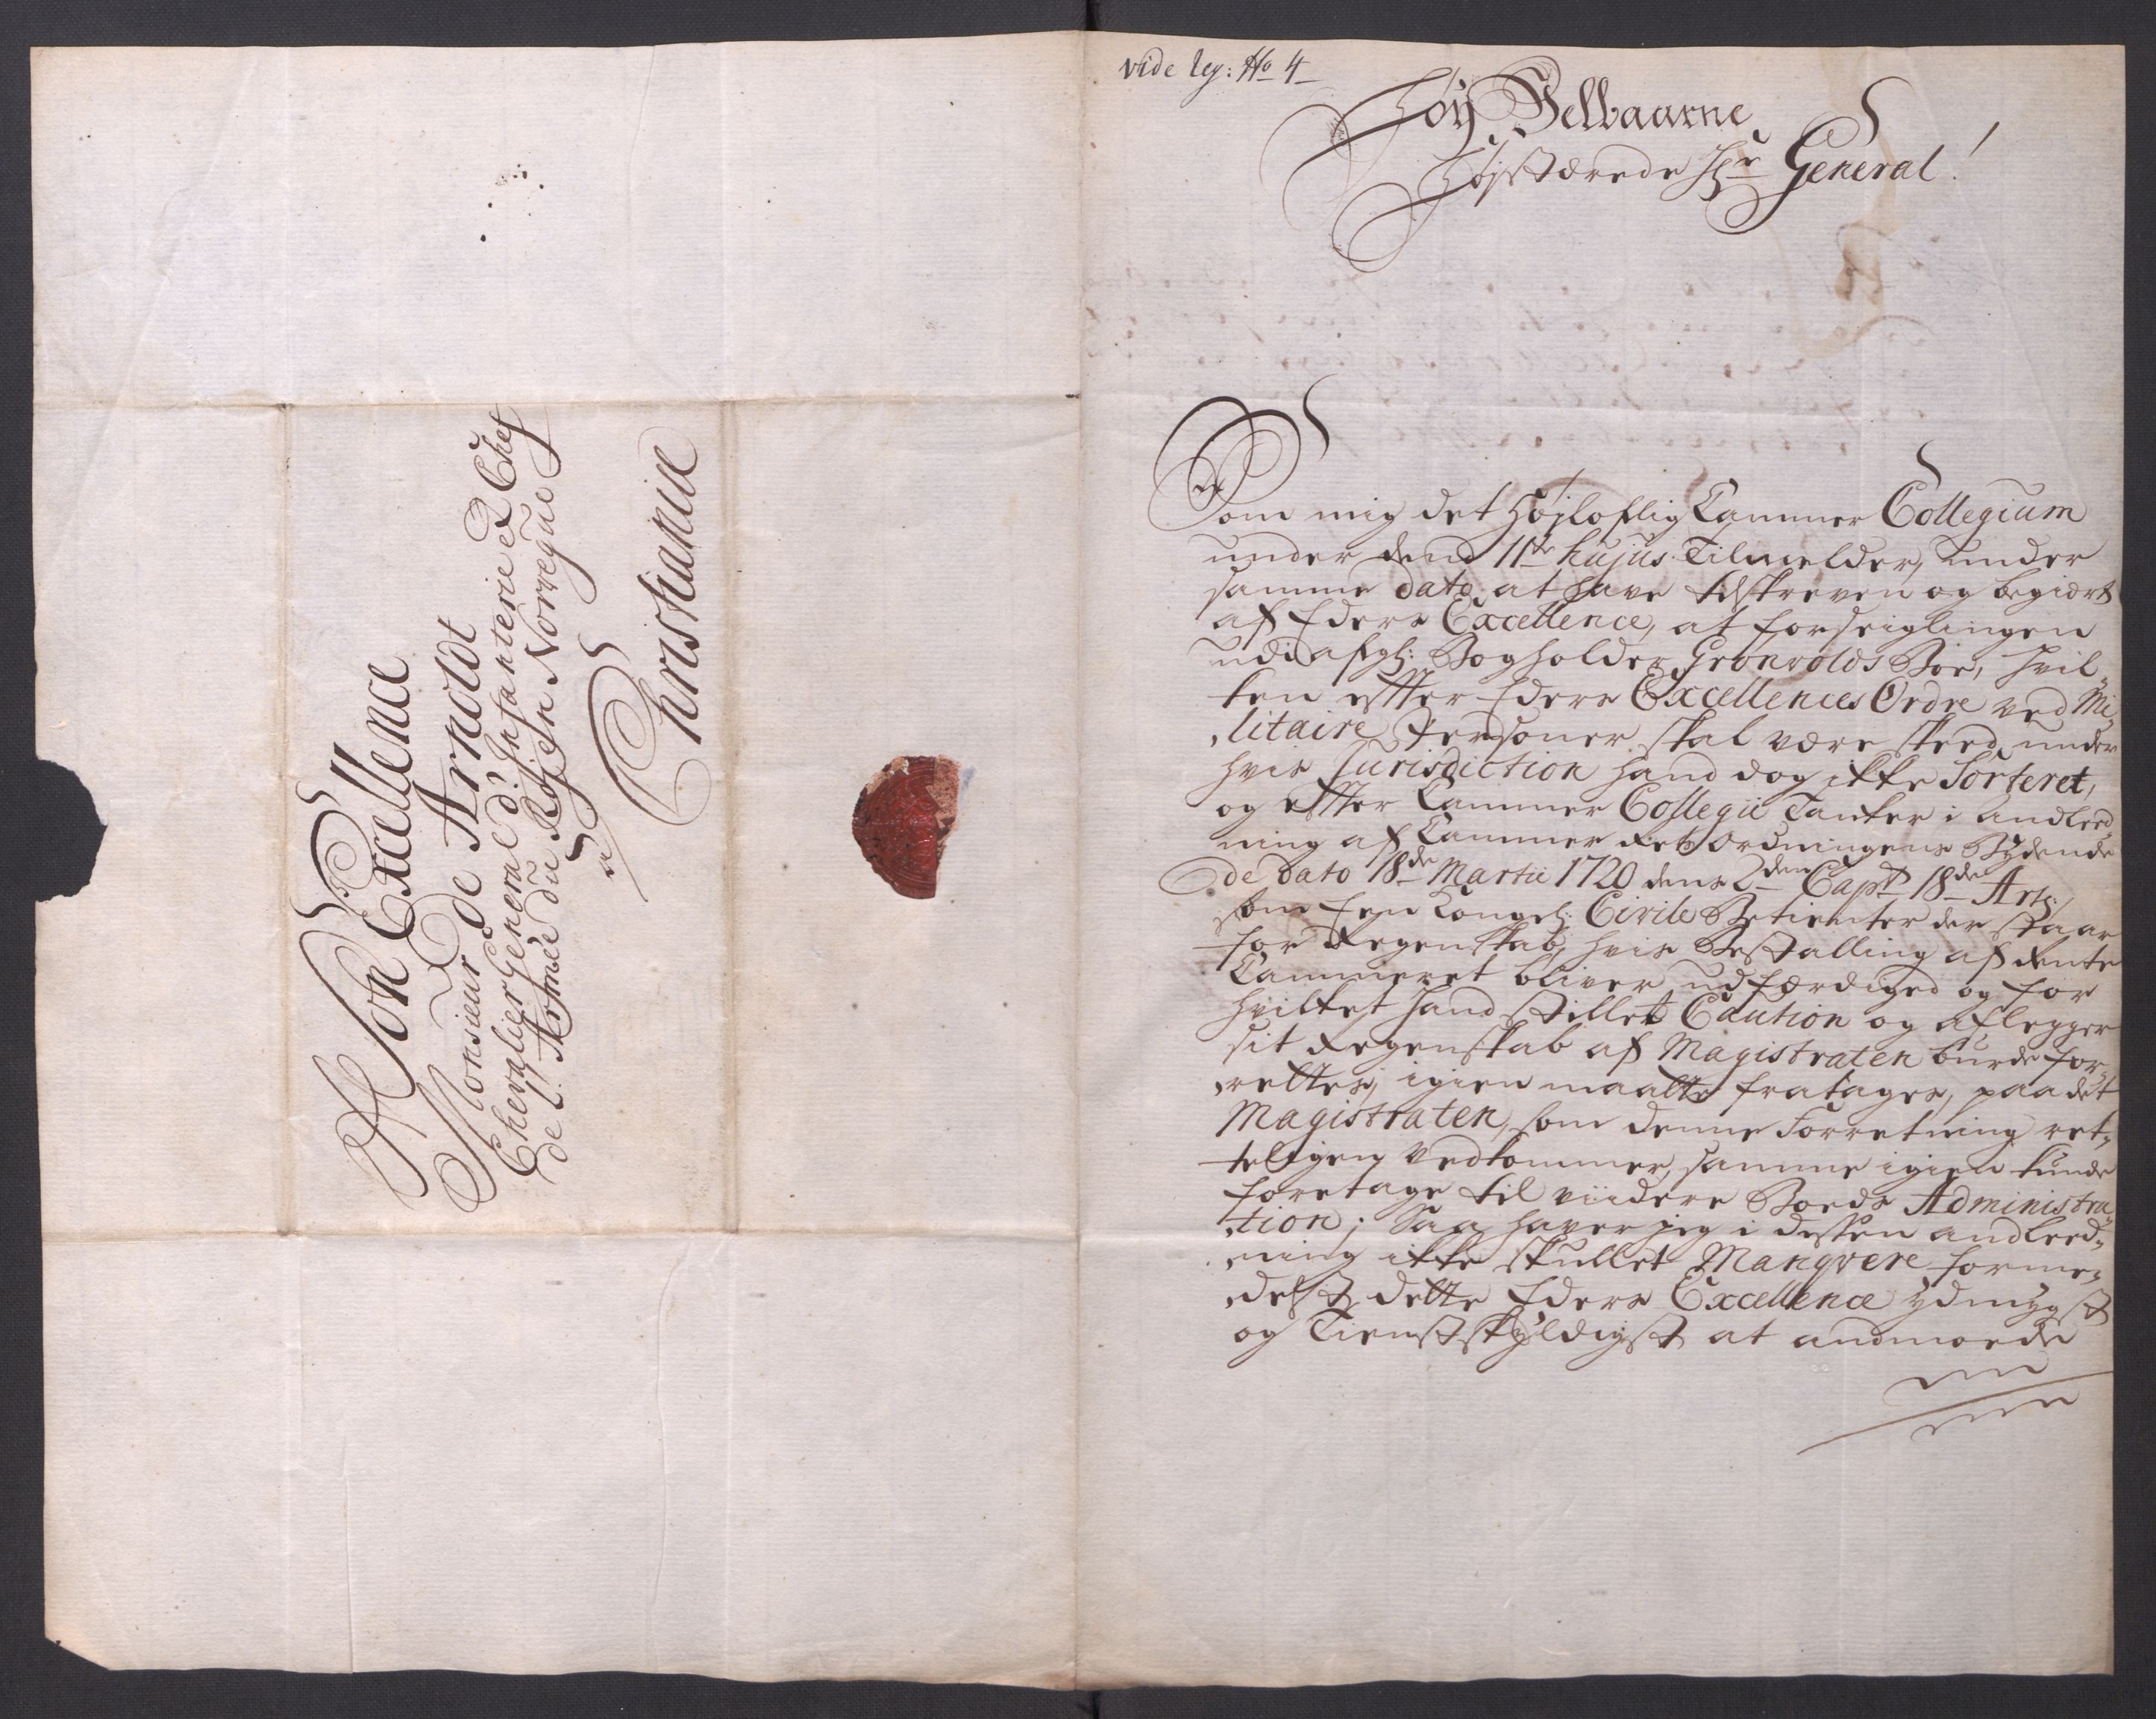 A Son Excellence
Monsieur de Arnoldt
Chevalier General d'Infanterie & Chef
de L'Armée du Roj en Norregue
a
Christianie
vide leg: No 4
Høy Velbaarne
Højstærede Hr General!
Som mig det Højloflig Cammer Collegium
under dend 11te hujus Tilmelder, under
samme dato at have tilskreven og begiært
af Eders Excellence, at forseiglingen
udi afgl: Bogholder Grønvolds Boe, hvil-
ken efter Eders Excellences Ordre ved Mi-
litaire Personer skal være skeed, under
hvis Jurisdiction hand dog ikke Sorteret,
og efter Cammer Collegii Tanker i andleed-
ning af Cammer Ret Ordningens Bydende
de dato 18de Martii 1720 dens 2den Capt 18de Art:
som Een Kongel: Civile Betienter der staar
for Regenskab, hvis Bestalling af Rente
Cammeret bliver udfærdiged og for
hvilket hand stillet Caution og aflegger
sit Regenskab af Magistraten burde for-
rettes, igien maatte fratages, paa det
Magistraten, som denne Forretning ret-
teligen vedkommer, samme igien kunde
foretage til viidere Boeds Administra-
tion; Saa haver jeg i dessen andleed-
ning ikke skullet Manqvere forme-
delst dette Eders Excellence ydmygst
og Tienstskyldigst at anmoede